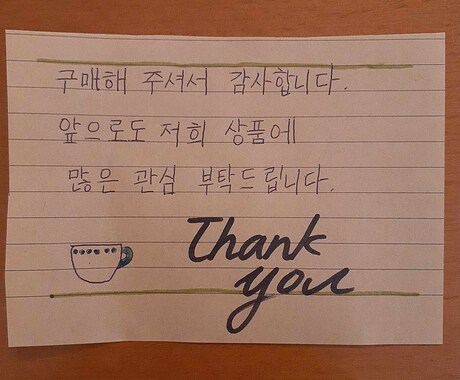 구매해 주셔서 감사합니다.
앞으로도 저희 상품에
많은 관심 부탁드립니다.
Thank
you